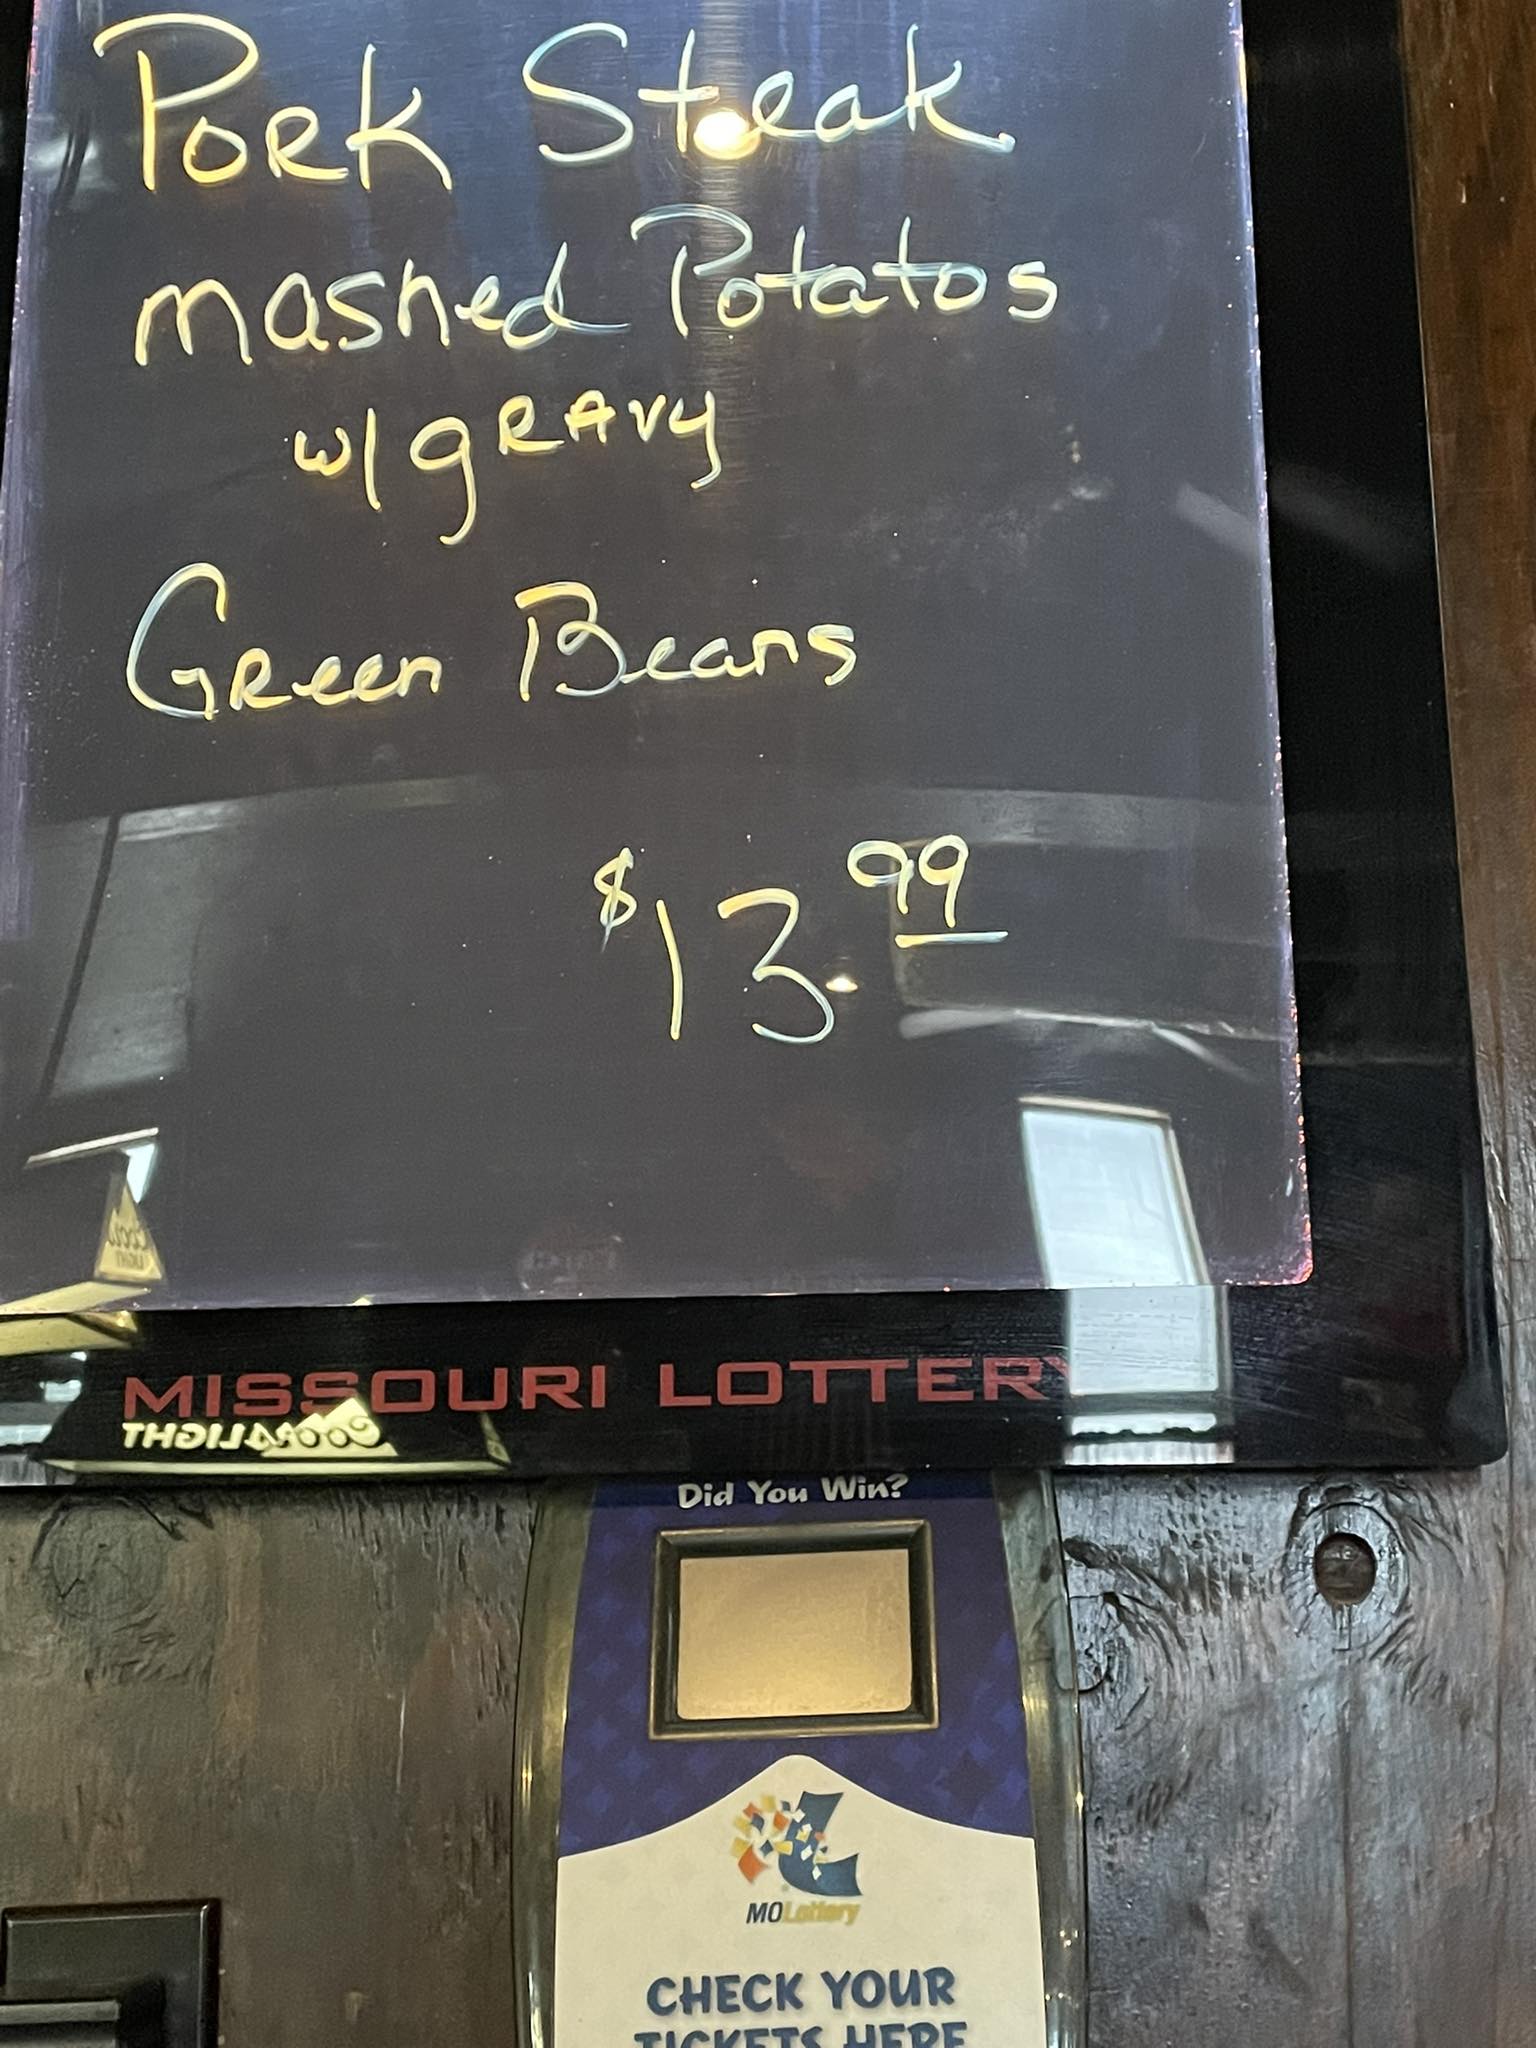 Pork Steak
mashed Potatos
w/ gravy
Green Beans
$13 99
MISSOURI LOTTERY
Coors LIGHT
Did You Win?
MOLottery
CHECK YOUR
TICKETS HERE